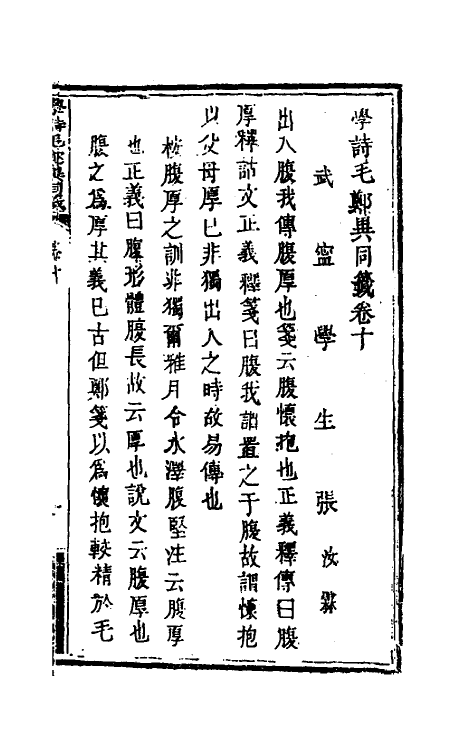 學詩毛鄭異同籤卷十
武寍學生張汝霖
出入腹我傳腹厚也箋云腹懷抱也正義釋傳曰腹
厚釋詁文正義釋箋曰腹我謂置之于腹故謂懷抱
以父母厚已非獨出入之時故易傳也
按腹厚之訓非獨爾雅月令水澤腹堅注云腹厚
也正義曰腹形體腹長故云厚也說文云腹厚也
腹之爲厚其義已古但鄭箋以爲懷抱較精於毛
學詩毛鄭異同籤 卷十